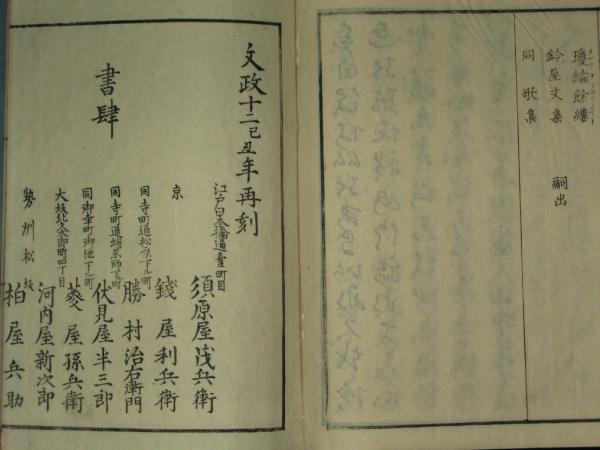 瓊綸餘縷
鈴屋文集 嗣出
同歌集
文政十二己丑年再刻
書肆
江戸日本橋通壹町目 須原屋茂兵衛
京 錢屋利兵衛
同寺町通松原下ル町 勝村治右衛門
同寺町通蛸薬師下ル町 伏見屋半三郎
同御幸町御池下ル町 菱屋孫兵衛
大坂北久太郎町四丁目 河内屋新次郎
勢州松坂 柏屋兵助